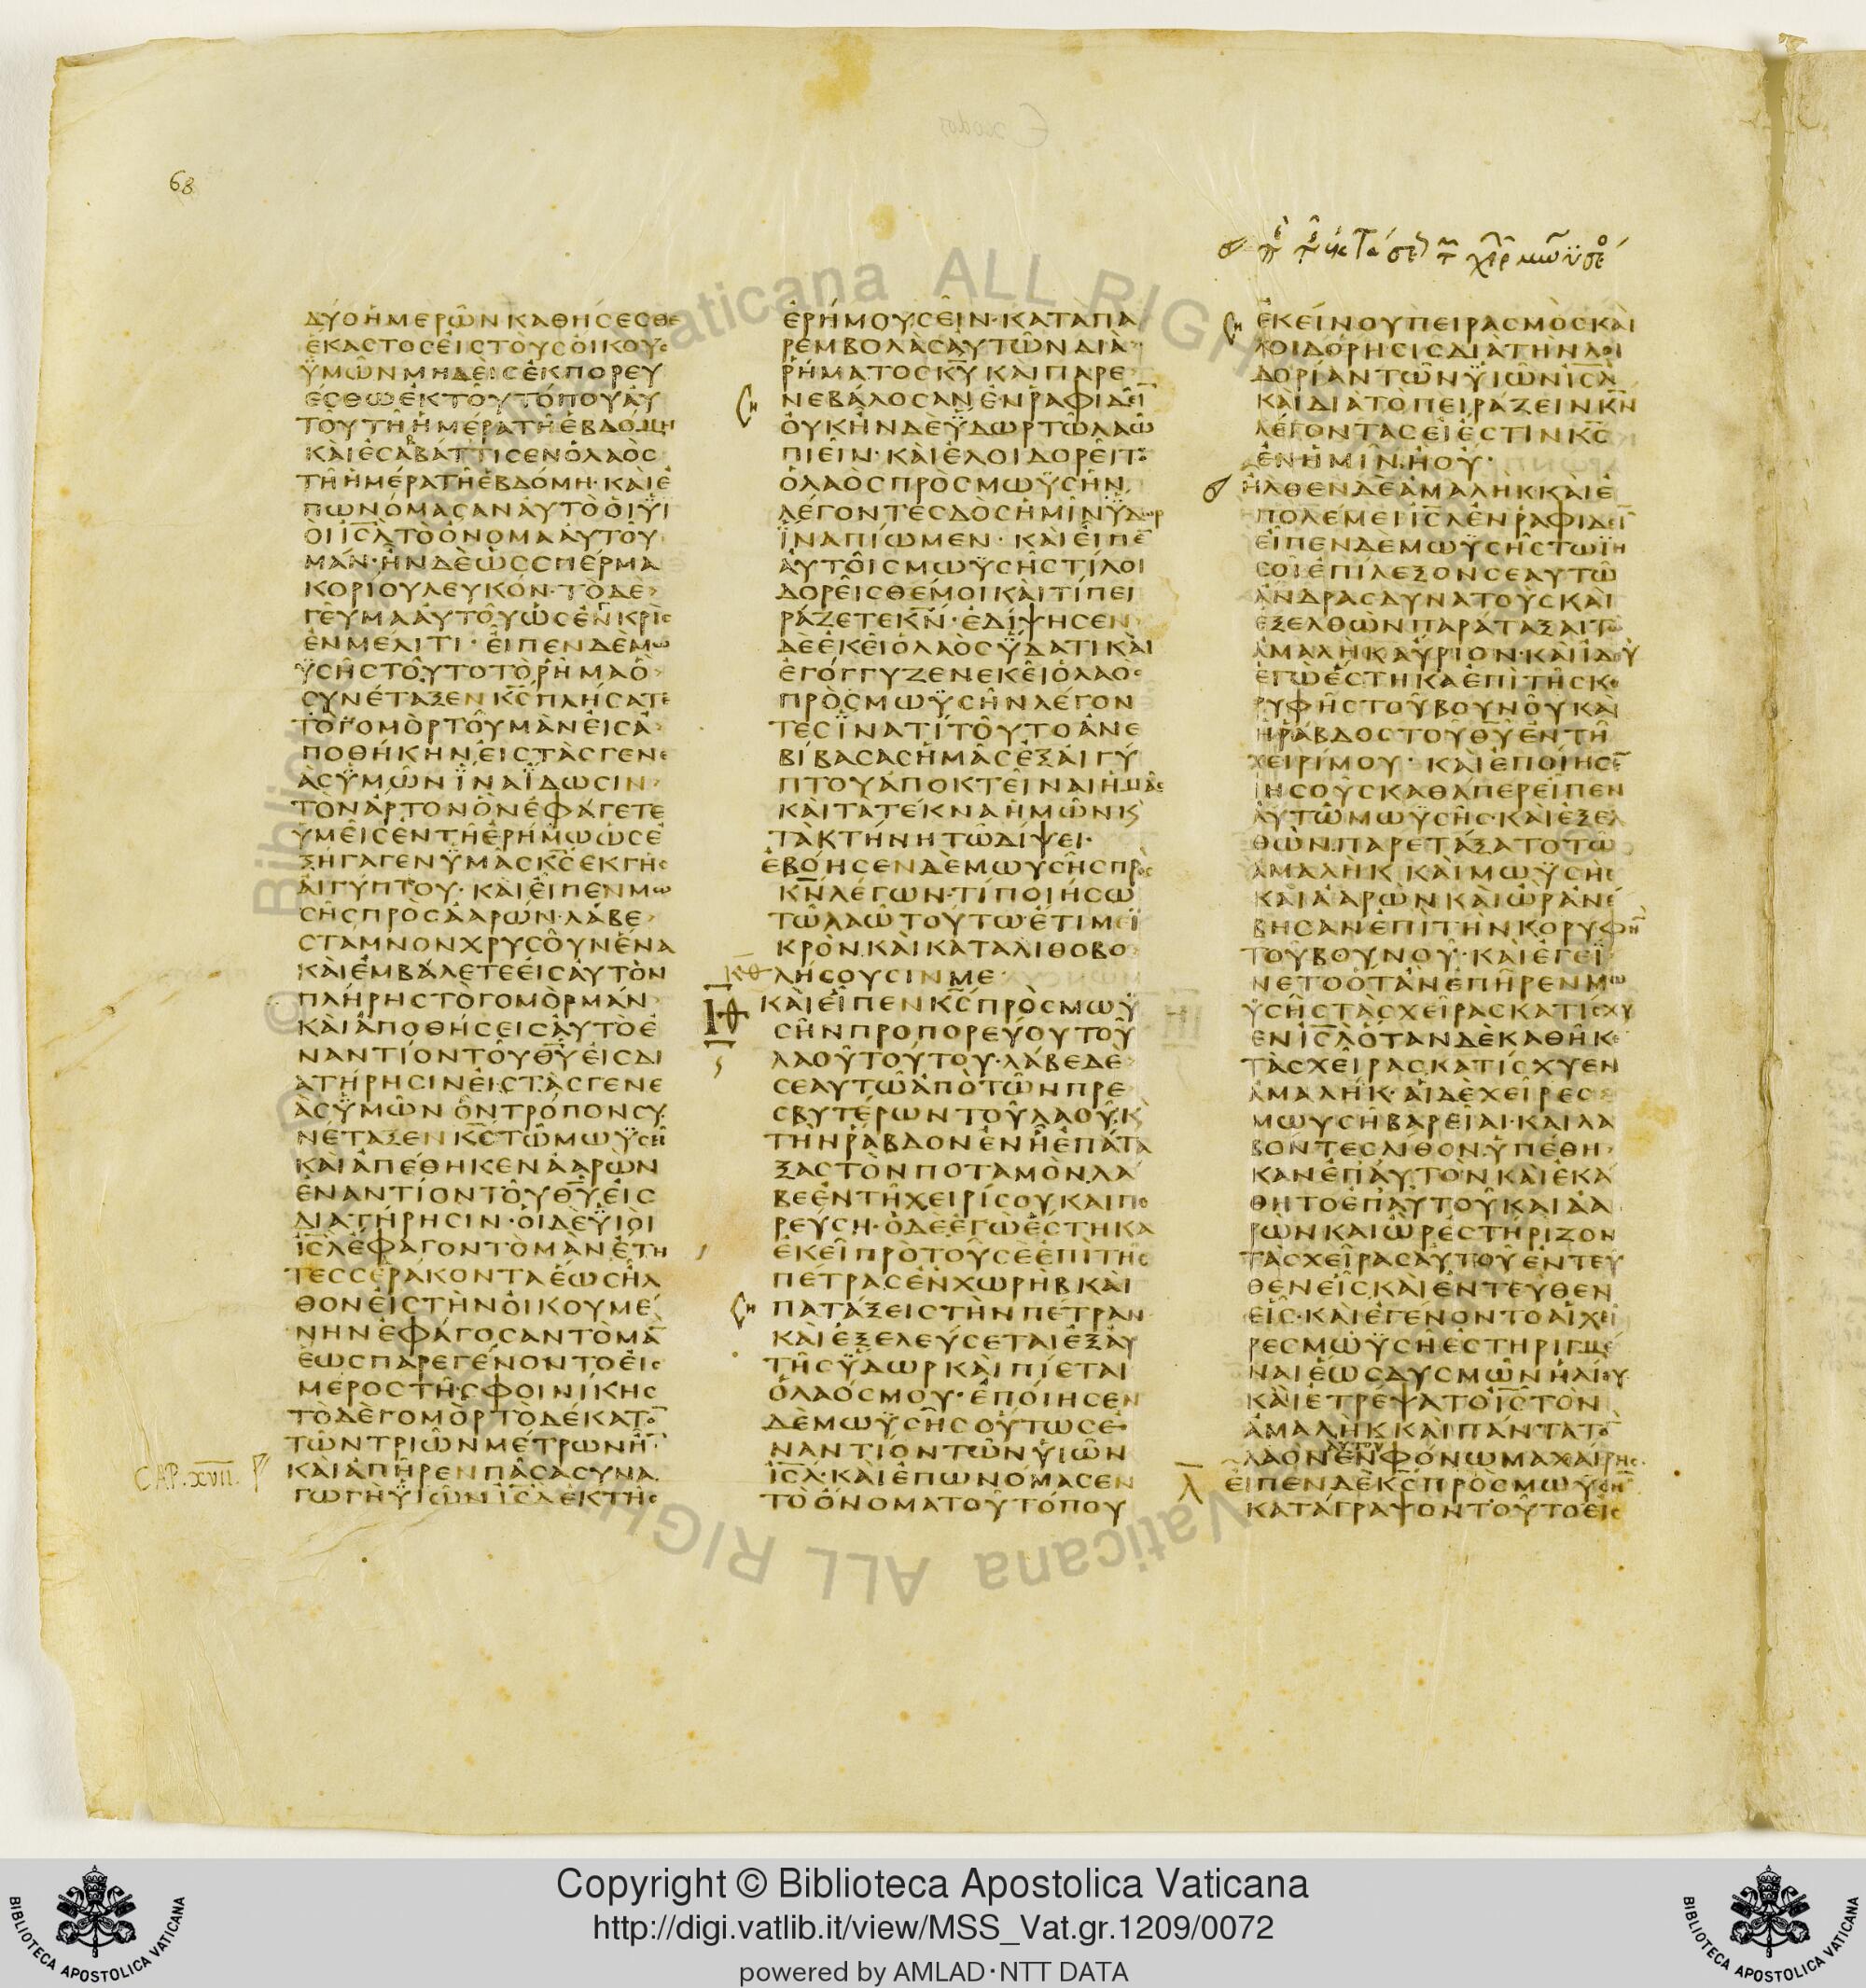 68
ΔΥΟΗΜΕΡΩΝΚΑΘΗϹΕϹΘΕ
ΕΚΑϹΤΟϹΕΙϹΤΟΥϹΟΙΚΟΥϹ
ΫΜΩΝΜΗΔΕΙϹΕΚΠΟΡΕΥ
ΕϹΘΩΕΚΤΟΥΤΟΠΟΥΑΥ
ΤΟΥΤΗΗΜΕΡΑΤΗΕΒΔΟΜΗ
ΚΑΙΕϹΑΒΒΑΤΙϹΕΝΟΛΑΟϹ
ΤΗΗΜΕΡΑΤΗΕΒΔΟΜΗ·ΚΑΙΕ
ΠΩΝΟΜΑϹΑΝΑΥΤΟΟΙΫΙ
ΟΙΙϹ̅Λ̅ΤΟΟΝΟΜΑΑΥΤΟΥ
ΜΑΝ·ΗΝΔΕΩϹϹΠΕΡΜΑ
ΚΟΡΙΟΥΛΕΥΚΟΝ·ΤΟΔΕ
ΓΕΥΜΑΑΥΤΟΥΩϹΕΝΚΡΙϹ
ΕΝΜΕΛΙΤΙ·ΕΙΠΕΝΔΕΜΩ
ΫϹΗϹΤΟΥΤΟΤΟΡΗΜΑΟ
ϹΥΝΕΤΑΞΕΝΚ̅Ϲ̅ΠΛΗϹΑΤΕ
ΤΟΓΟΜΟΡΤΟΥΜΑΝΕΙϹΑ
ΠΟΘΗΚΗΝΕΙϹΤΑϹΓΕΝΕ
ΑϹΫΜΩΝΪΝΑΪΔΩϹΙΝ
ΤΟΝΑΡΤΟΝΟΝΕΦΑΓΕΤΕ
ΥΜΕΙϹΕΝΤΗΕΡΗΜΩΩϹΕ
ΞΗΓΑΓΕΝΫΜΑϹΚ̅Ϲ̅ΕΚΓΗϹ
ΑΙΓΥΠΤΟΥ·ΚΑΙΕΙΠΕΝΜΩ
ϹΗϹΠΡΟϹΑΑΡΩΝ·ΛΑΒΕ
ϹΤΑΜΝΟΝΧΡΥϹΟΥΝΕΝΑ
ΚΑΙΕΜΒΑΛΕΤΕΕΙϹΑΥΤΟΝ
ΠΛΗΡΗϹΤΟΓΟΜΟΡΜΑΝ
ΚΑΙΑΠΟΘΗϹΕΙϹΑΥΤΟΕ
ΝΑΝΤΙΟΝΤΟΥΘ̅Υ̅ΕΙϹΔΙ
ΑΤΗΡΗϹΙΝΕΙϹΤΑϹΓΕΝΕ
ΑϹΫΜΩΝΟΝΤΡΟΠΟΝϹΥ
ΝΕΤΑΞΕΝΚ̅Ϲ̅ΤΩΜΩΫϹΗ
ΚΑΙΑΠΕΘΗΚΕΝΑΑΡΩΝ
ΕΝΑΝΤΙΟΝΤΟΥΘ̅Υ̅ΕΙϹ
ΔΙΑΤΗΡΗϹΙΝ·ΟΙΔΕΫΙΟΙ
ΙϹ̅Λ̅ΕΦΑΓΟΝΤΟΜΑΝΕΤΗ
ΤΕϹϹΕΡΑΚΟΝΤΑΕΩϹΗΛ
ΘΟΝΕΙϹΤΗΝΟΙΚΟΥΜΕ
ΝΗΝΕΦΑΓΟϹΑΝΤΟΜΑ̅
ΕΩϹΠΑΡΕΓΕΝΟΝΤΟΕΙϹ
ΜΕΡΟϹΤΗϹΦΟΙΝΙΚΗϹ
ΤΟΔΕΓΟΜΟΡΤΟΔΕΚΑΤΟ̅
ΤΩΝΤΡΙΩΝΜΕΤΡΩΝΗ̅·
CAP. XVII. ΚΑΙΑΠΗΡΕΝΠΑϹΑϹΥΝΑ
ΓΩΓΗΫΙΩΝΙϹ̅Λ̅ΕΚΤΗϹ
ΕΡΗΜΟΥϹΕΙΝ·ΚΑΤΑΠΑ
ΡΕΜΒΟΛΑϹΑΥΤΩΝΔΙΑ
ΡΗΜΑΤΟϹΚ̅Υ̅ΚΑΙΠΑΡΕ
ΝΕΒΑΛΟϹΑΝΕΝΡΑΦΙΔΕΙ̅
ΟΥΚΗΝΔΕΫΔΩΡΤΩΛΑΩ
ΠΙΕΙΝ·ΚΑΙΕΛΟΙΔΟΡΕΙΤΟ
ΟΛΑΟϹΠΡΟϹΜΩΫϹΗΝ
ΛΕΓΟΝΤΕϹΔΟϹΗΜΙΝΫΔΩΡ
ΪΝΑΠΙΩΜΕΝ·ΚΑΙΕΙΠΕ̅
ΑΥΤΟΙϹΜΩΫϹΗϹΤΙΛΟΙ
ΔΟΡΕΙϹΘΕΜΟΙΚΑΙΤΙΠΕΙ
ΡΑΖΕΤΕΚ̅Ν̅·ΕΔΙΨΗϹΕΝ
ΔΕΕΚΕΙΟΛΑΟϹΫΔΑΤΙΚΑΙ
ΕΓΟΓΓΥΖΕΝΕΚΕΙΟΛΑΟϹ
ΠΡΟϹΜΩΫϹΗΝΛΕΓΟΝ
ΤΕϹΪΝΑΤΙΤΟΥΤΟΑΝΕ
ΒΙΒΑϹΑϹΗΜΑϹΕΞΑΙΓΥ
ΠΤΟΥΑΠΟΚΤΕΙΝΑΙΗΜΑϹ
ΚΑΙΤΑΤΕΚΝΑΗΜΩΝΚϚ
ΤΑΚΤΗΝΗΤΩΔΙΨΕΙ·
ΕΒΟΗϹΕΝΔΕΜΩΥϹΗϹΠΡΟϹ
Κ̅Ν̅ΛΕΓΩΝ·ΤΙΠΟΙΗϹΩ
ΤΩΛΑΩΤΟΥΤΩΕΤΙΜΕΙ
ΚΡΟΝΚΑΙΚΑΤΑΛΙΘΟΒΟ
ΚΘ ΛΗϹΟΥϹΙΝΜΕ
ΙΦ ΚΑΙΕΙΠΕΝΚ̅Ϲ̅ΠΡΟϹΜΩΫ
ϹΗΝΠΡΟΠΟΡΕΥΟΥΤΟΥ
ΛΑΟΥΤΟΥΤΟΥ·ΛΑΒΕΔΕ
ϹΕΑΥΤΩΑΠΟΤΩΝΠΡΕ
ϹΒΥΤΕΡΩΝΤΟΥΛΑΟΥΚ
ΤΗΝΡΑΒΔΟΝΕΝΗΕΠΑΤΑ
ΞΑϹΤΟΝΠΟΤΑΜΟΝΛΑ
ΒΕΕΝΤΗΧΕΙΡΙϹΟΥΚΑΙΠΟ
ΡΕΥϹΗ·ΟΔΕΕΓΩΕϹΤΗΚΑ
ΕΚΕΙΠΡΟΤΟΥϹΕΕΠΙΤΗϹ
ΠΕΤΡΑϹΕΝΧΩΡΗΒΚΑΙ
ΠΑΤΑΞΕΙϹΤΗΝΠΕΤΡΑΝ
ΚΑΙΕΞΕΛΕΥϹΕΤΑΙΕΞΑΥ
ΤΗϹΫΔΩΡΚΑΙΠΙΕΤΑΙ
ΟΛΑΟϹΜΟΥ·ΕΠΟΙΗϹΕΝ
ΔΕΜΩΫϹΗϹΟΥΤΩϹΕ
ΝΑΝΤΙΟΝΤΩΝΫΙΩΝ
ΙϹ̅Λ̅·ΚΑΙΕΠΩΝΟΜΑϹΕΝ
ΤΟΟΝΟΜΑΤΟΥΤΟΠΟΥ
ΕΚΕΙΝΟΥΠΕΙΡΑϹΜΟϹΚΑΙ
ΛΟΙΔΟΡΗϹΙϹΔΙΑΤΗΝΛΟΙ
ΔΟΡΙΑΝΤΩΝΫΙΩΝΙϹ̅Λ̅
ΚΑΙΔΙΑΤΟΠΕΙΡΑΖΕΙΝΚ̅Ν̅
ΛΕΓΟΝΤΑϹΕΙΕϹΤΙΝΚ̅Ϲ̅
ΕΝΗΜΙΝΗΟΥ·
ΗΛΘΕΝΔΕΑΜΑΛΗΚΚΑΙΕ
ΠΟΛΕΜΕΙΙϹ̅Λ̅ΕΝΡΑΦΙΔΕΙ̅
ΕΙΠΕΝΔΕΜΩΫϹΗϹΤΩΪΗ
ϹΟΙΕΠΙΛΕΞΟΝϹΕΑΥΤΩ
ΑΝΔΡΑϹΔΥΝΑΤΟΥϹΚΑΙ
ΕΞΕΛΘΩΝΠΑΡΑΤΑΞΑΙΤΩ
ΑΜΑΛΗΚΑΥΡΙΟΝ·ΚΑΙΪΔΟΥ
ΕΓΩΕϹΤΗΚΑΕΠΙΤΗϹΚΟ
ΡΥΦΗϹΤΟΥΒΟΥΝΟΥΚΑΙ
ΗΡΑΒΔΟϹΤΟΥΘ̅Υ̅ΕΝΤΗ
ΧΕΙΡΙΜΟΥ·ΚΑΙΕΠΟΙΗϹΕ̅
ΙΗϹΟΥϹΚΑΘΑΠΕΡΕΙΠΕΝ
ΑΥΤΩΜΩΫϹΗϹ·ΚΑΙΕΞΕΛ
ΘΩΝΠΑΡΕΤΑΞΑΤΟΤΩ
ΑΜΑΛΗΚΚΑΙΜΩΫϹΗϹ
ΚΑΙΑΑΡΩΝΚΑΙΩΡΑΝΕ
ΒΗϹΑΝΕΠΙΤΗΝΚΟΡΥΦΗ̅
ΤΟΥΒΟΥΝΟΥ·ΚΑΙΕΓΕΙ
ΝΕΤΟΟΤΑΝΕΠΗΡΕΝΜΩ
ΫϹΗϹΤΑϹΧΕΙΡΑϹΚΑΤΙϹΧΥ
ΕΝΙϹ̅Λ̅ΟΤΑΝΔΕΚΑΘΗΚΕ
ΤΑϹΧΕΙΡΑϹΚΑΤΙϹΧΥΕΝ
ΑΜΑΛΗΚ·ΑΙΔΕΧΕΙΡΕϹ
ΜΩΥϹΗΒΑΡΕΙΑΙ·ΚΑΙΛΑ
ΒΟΝΤΕϹΛΙΘΟΝΫΠΕΘΗ
ΚΑΝΕΠΑΥΤΟΝΚΑΙΕΚΑ
ΘΗΤΟΕΠΑΥΤΟΥΚΑΙΑΑ
ΡΩΝΚΑΙΩΡΕϹΤΗΡΙΖΟΝ
ΤΑϹΧΕΙΡΑϹΑΥΤΟΥΕΝΤΕΥ
ΘΕΝΕΙϹΚΑΙΕΝΤΕΥΘΕΝ
ΕΙϹ·ΚΑΙΕΓΕΝΟΝΤΟΑΙΧΕΙ
ΡΕϹΜΩΫϹΗΕϹΤΗΡΙΓΜΕ
ΝΑΙΕΩϹΔΥϹΜΩΝΗΛΙΟΥ
ΚΑΙΕΤΡΕΨΑΤΟΙ̅Ϲ̅ΤΟΝ
ΑΜΑΛΗΚΚΑΙΠΑΝΤΑΤΟ̅
ΑΥΤΟΥ
ΛΑΟΝΕΝΦΟΝΩΜΑΧΑΙΡΗϹ·
Λ̅ ΕΙΠΕΝΔΕΚ̅Ϲ̅ΠΡΟϹΜΩΫϹΗ̅
ΚΑΤΑΓΡΑΨΟΝΤΟΥΤΟΕΙϹ
Copyright © Biblioteca Apostolica Vaticana
http://digi.vatlib.it/view/MSS_Vat.gr.1209/0072
powered by AMLAD·NTT DATA
BIBLIOTECA APOSTOLICA VATICANA
BIBLIOTECA APOSTOLICA VATICANA